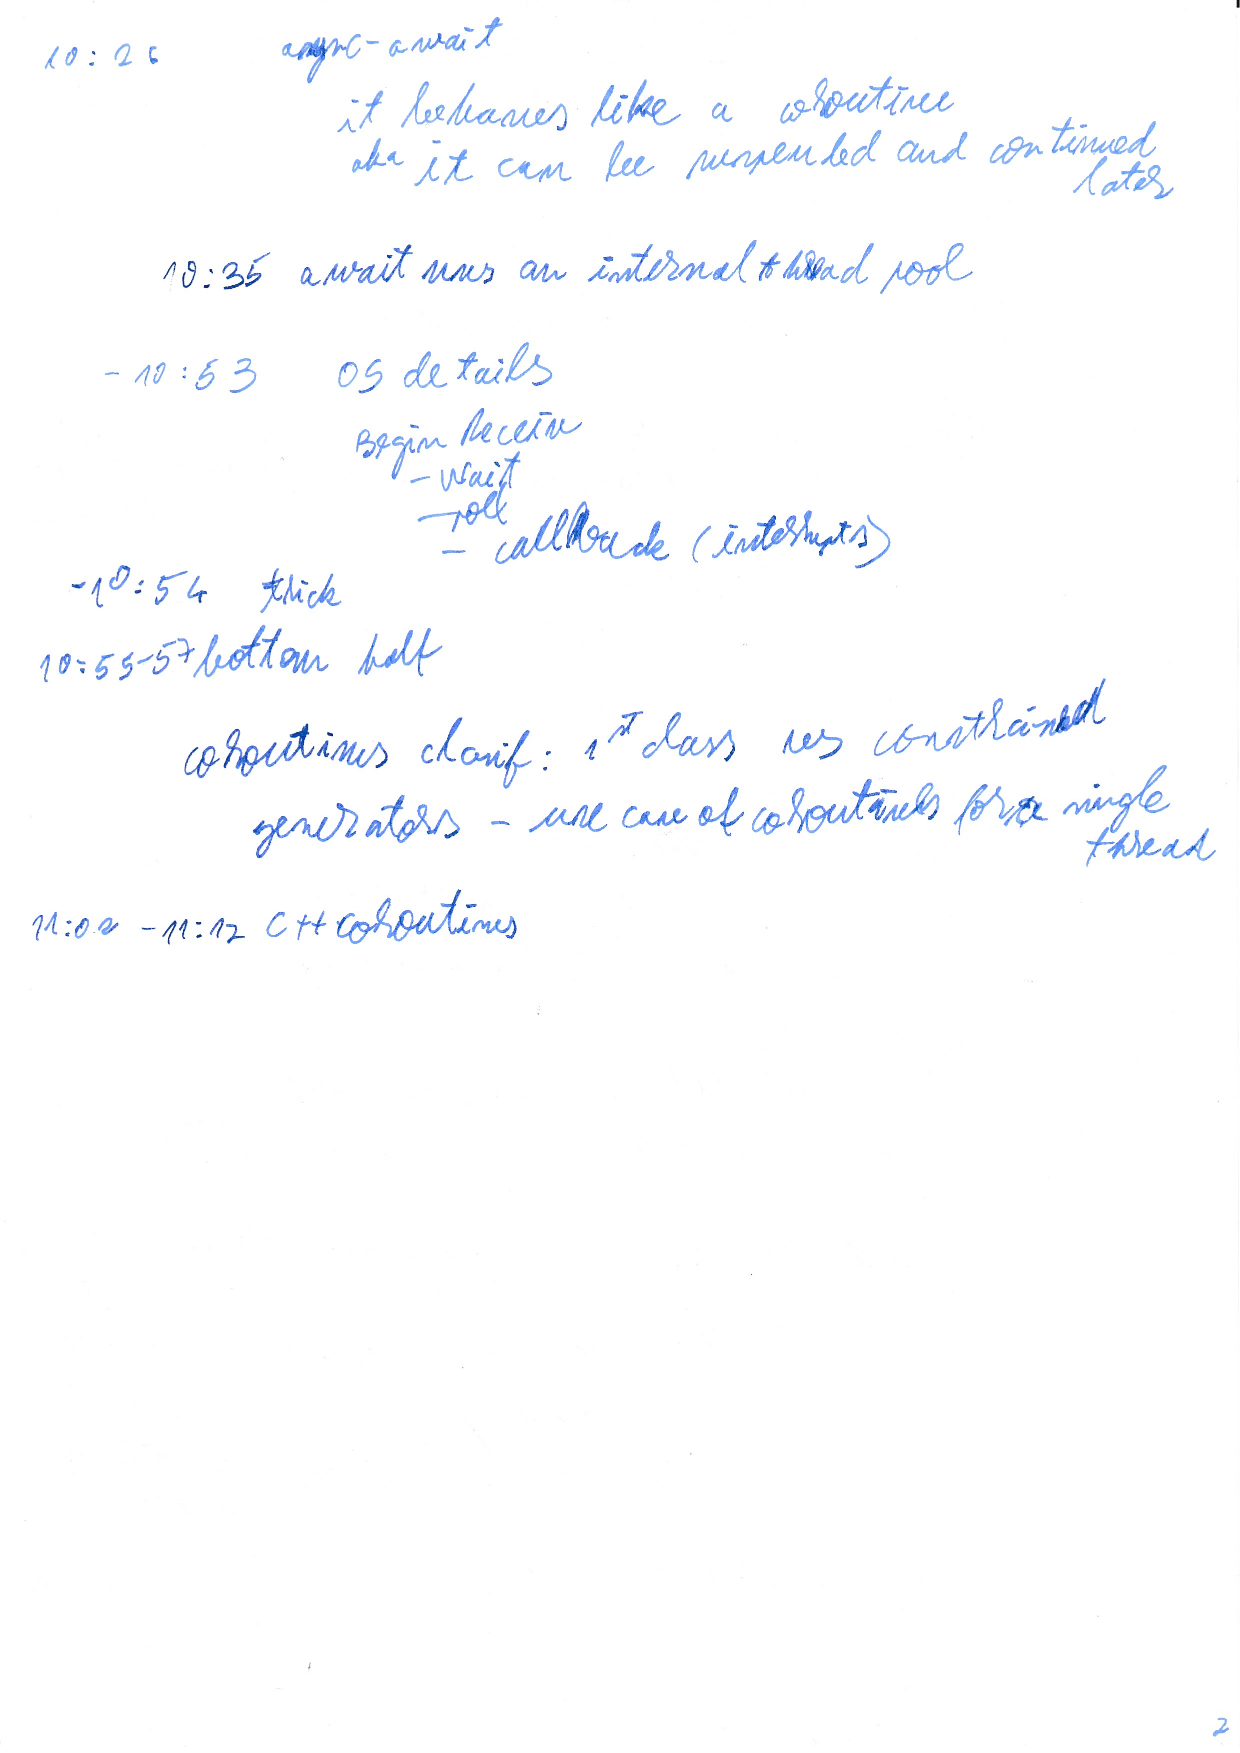 10:26 async-await
it behaves like a coroutine
aka it can be suspended and continued
later
10:35 await uses an internal thread pool
-10:53 OS details
Begin Receive
- wait
- poll
- callback (interrupts)
-10:54 trick
10:55-57 bottom half
coroutines classif: 1st class vs constrained
generators - use case of coroutines for a single
thread
11:02 -11:12 C++ coroutines
2